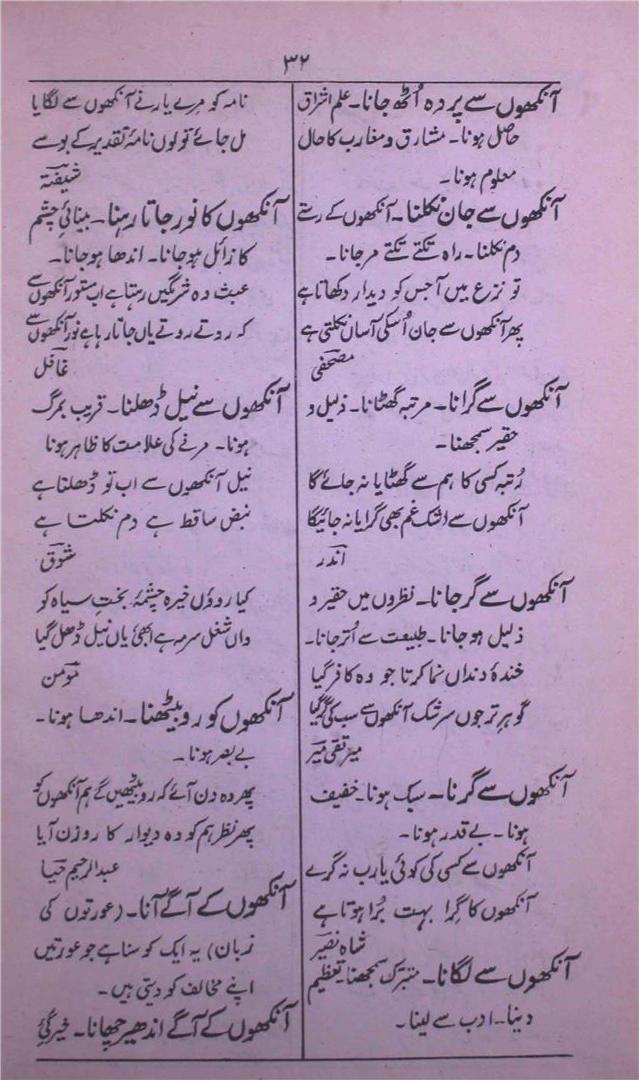 ۳۲
آنکھوں سے پردہ اُٹھ جانا۔ علم اشراق
حاصل ہونا۔ مشارق و مغارب کا حال
معلوم ہونا۔
آنکھوں سے جان نکلنا۔ آنکھوں کے رستے
دم نکلنا۔ راہ تکتے تکتے مرجانا۔
تو نزع میں آجس کو دیدار دکھاتا ہے
پھر آنکھوں سے جان اُسکی آساں نکلتی ہے
مصحفی
آنکھوں سے گرانا۔ مرتبہ گھٹانا۔ ذلیل و
حقیر سمجھنا۔
رُتبہ کسی کا ہم سے گھٹایا نہ جائے گا
آنکھوں سے اشک غم بھی گرایا نہ جائیگا
اندر
آنکھوں سے گر جانا۔ نظروں میں حقیر و
ذلیل ہو جانا۔ طبیعت سے اُتر جانا۔
خندۂ دنداں نما کرتا جو وہ کافر گیا
گوہر تر جوں سرشک آنکھوں سے سب کی گر گیا
میر تقی میر
آنکھوں سے گرنا۔ سبک ہونا۔ خفیف
ہونا۔ بے قدر ہونا۔
آنکھوں سے کسی کی کوئی یا رب نہ گرے
آنکھوں کا گرا بہت بُرا ہوتا ہے
شاہ نصیر
آنکھوں سے لگانا۔ متبرک سمجھنا۔ تعظیم
دینا۔ ادب سے لینا۔
نامہ کو مرے یار نے آنکھوں سے لگایا
مل جائے تو لوں نامۂ تقدیر کے بوسے
شیفتہ
آنکھوں کا نور جاتا رہنا۔ بینائیِ چشم
کا زائل ہو جانا۔ اندھا ہو جانا۔
عبث وہ شرمگیں رہتا ہے اب مستور آنکھوں سے
کہ روتے روتے یاں جاتا رہا ہے نور آنکھوں سے
غافل
آنکھوں سے نیل ڈھلنا۔ قریب بمرگ
ہونا۔ مرنے کی علامت کا ظاہر ہونا
نیل آنکھوں سے اب تو ڈھلتا ہے
نبض ساقط ہے دم نکلتا ہے
شوق
کیا روؤں خیرہ چشمیٔ بختِ سیاہ کو
واں شغل سرمہ ہے ابھی یاں نیل ڈھل گیا
مومن
آنکھوں کو رو بیٹھنا۔ اندھا ہونا۔
بے بصر ہونا۔
پھر وہ دن آئے کہ رو بیٹھیں گے ہم آنکھوں کو
پھر نظر ہم کو وہ دیوار کا روزن آیا
عبد الرحیم حیا
آنکھوں کے آگے آنا۔ (عورتوں کی
زبان) یہ ایک کوسنا ہے جو عورتیں
اپنے مخالف کو دیتی ہیں۔
آنکھوں کے آگے اندھیر چھانا۔ خیرگیٔ